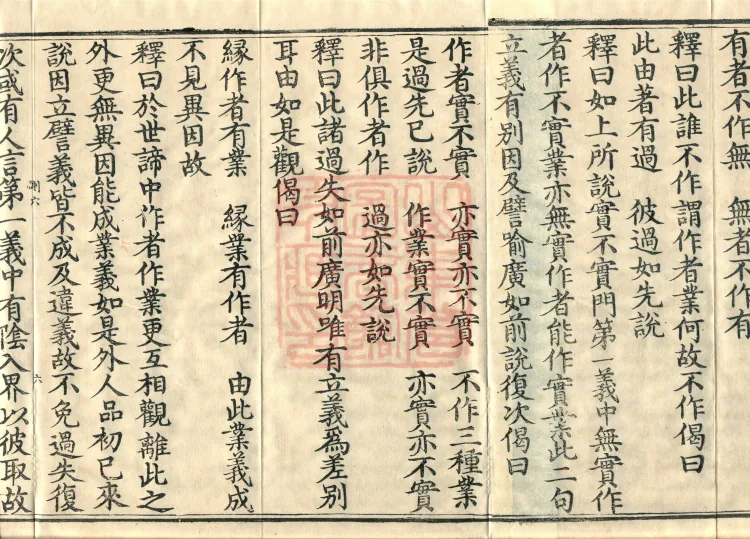 有者不作無　無者不作有
釋曰此誰不作謂作者業何故不作偈曰
此由著有過　彼過如先說
釋曰如上所說實不實門第一義中無實作
者作不實業亦無實作者能作實業此二句
立義有別因及譬喻廣如前說復次偈曰
作者實不實　亦實亦不實　不作三種業
是過先已說　作業實不實　亦實亦不實
非俱作者作　過亦如先說
釋曰此諸過失如前廣明唯有立義為差別
耳由如是觀偈曰
緣作者有業　緣業有作者　由此業義成
不見異因故
釋曰於世諦中作者作業更互相觀離此之
外更無異因能成業義如是外人品初已來
說因立譬義皆不成及違義故不免過失復
六
六
次或有人言第一義中有陰入界以彼取故